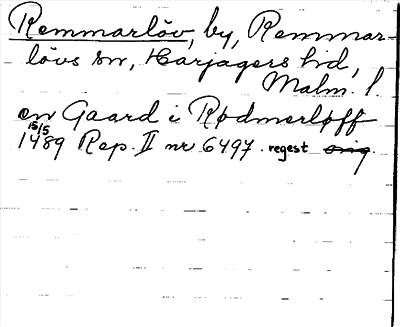 Remmarlöv, by, Remmar-
lövs sn, Harjagers hd,
Malm. l.
en Gaard i Rødmerløff
15/5
1489 Rep. II nr 6497. regest orig.